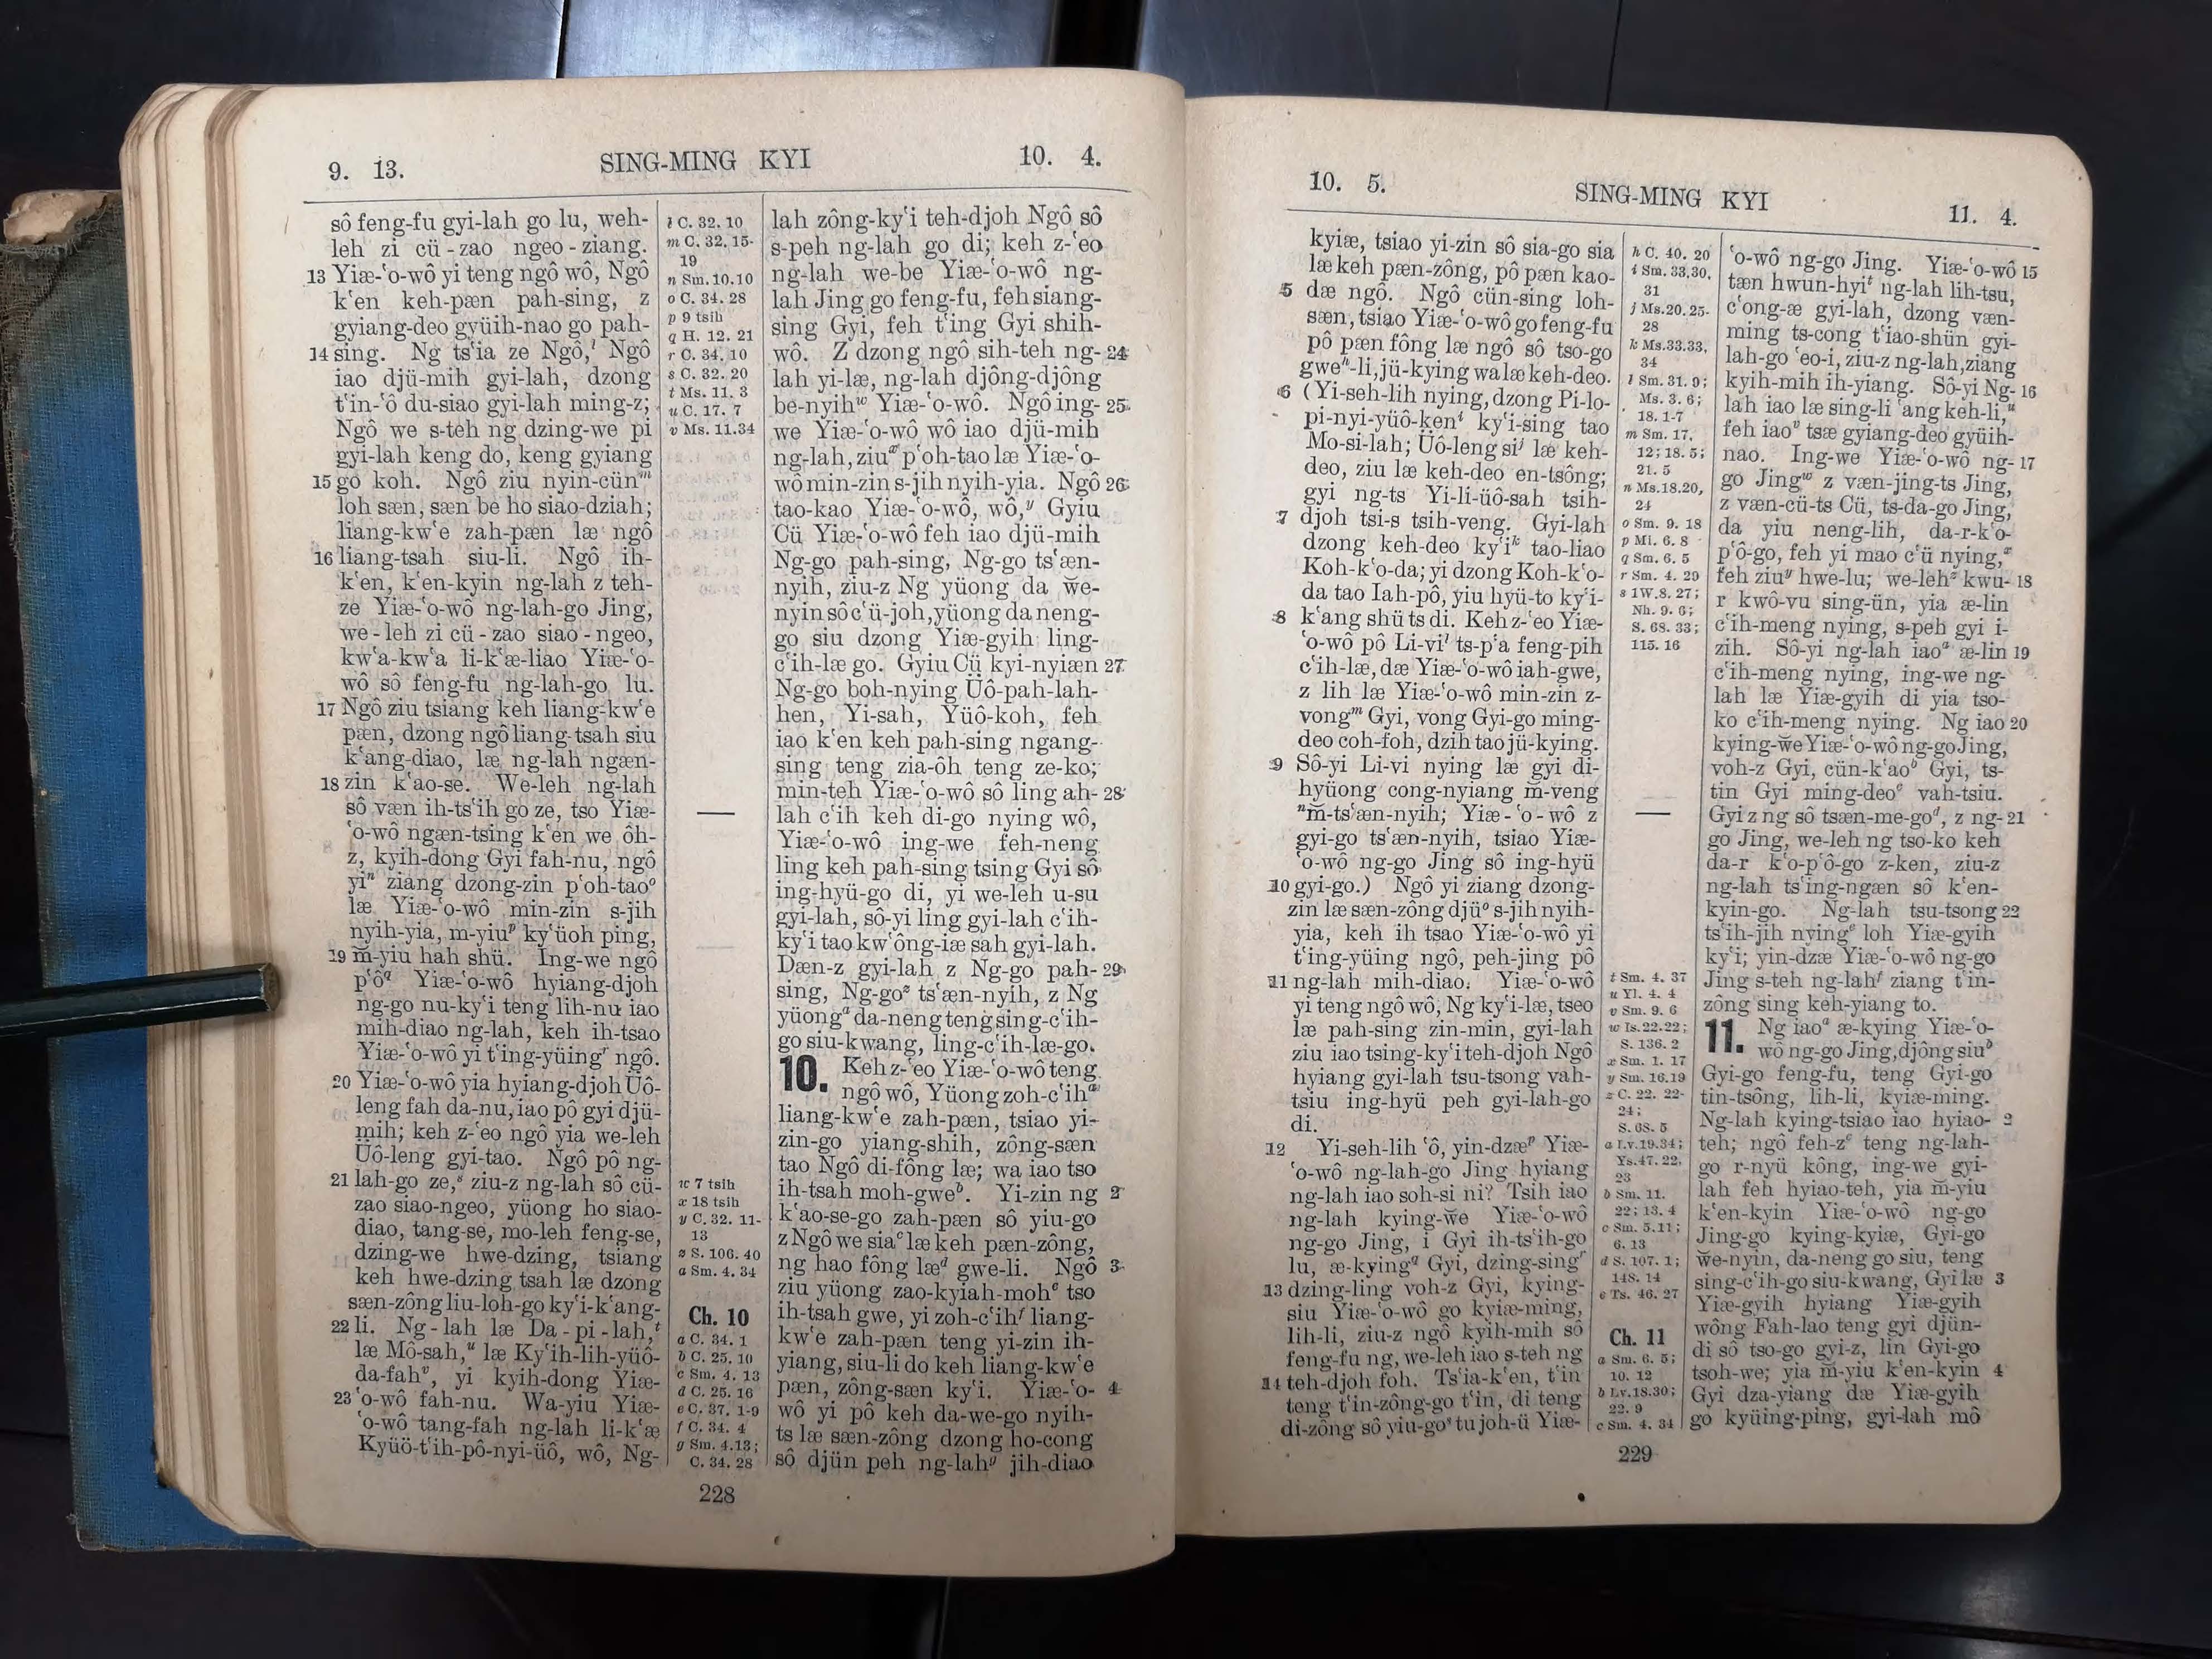 9. 13.
SING-MING KYI
10. 4.
sô feng-fu gyi-lah go lu, weh-
leh zi cü-zao ngeo-ziang.
13 Yiæ-‘o-wô yi teng ngô wô, Ngô
k‘en keh-pæn pah-sing, z
gyiang-deo gyüih-nao go pah-
14 sing. Ng ts‘ia ze Ngô,l Ngô
iao djü-mih gyi-lah, dzong
t‘in-‘ô du-siao gyi-lah ming-z;
Ngô we s-teh ng dzing-we pi
gyi-lah keng do, keng gyiang
15 go koh. Ngô ziu nyin-cünm
loh sæn, sæn be ho siao-dziah;
liang-kw‘e zah-pæn læ ngô
16 liang-tsah siu-li. Ngô ih-
k‘en, k‘en-kyin ng-lah z teh-
ze Yiæ-‘o-wô ng-lah-go Jing,
we-leh zi cü-zao siao-ngeo,
kw‘a-kw‘a li-k‘æ-liao Yiæ-‘o-
wô sô feng-fu ng-lah-go lu.
17 Ngô ziu tsiang keh liang-kw‘e
pæn, dzong ngô liang-tsah siu
k‘ang-diao, læ ng-lah ngæn-
18 zin k‘ao-se. We-leh ng-lah
sô væn ih-ts‘ih go ze, tso Yiæ-
‘o-wô ngæn-tsing k‘en we ôh-
z, kyih-dong Gyi fah-nu, ngô
yin ziang dzong-zin p‘oh-taoo
læ Yiæ-‘o-wô min-zin s-jih
nyih-yia, m̄-yiup ky‘üoh ping,
19 m̄-yiu hah shü. Ing-we ngô
p‘ôq Yiæ-‘o-wô hyiang-djoh
ng-go nu-ky‘i teng lih-nu iao
mih-diao ng-lah, keh ih-tsao
Yiæ-‘o-wô yi t‘ing-yüingr ngô.
20 Yiæ-‘o-wô yia hyiang-djoh Üô-
leng fah da-nu, iao pô gyi djü-
mih; keh z-‘eo ngô yia we-leh
Üô-leng gyi-tao. Ngô pô ng-
21 lah-go ze,s ziu-z ng-lah sô cü-
zao siao-ngeo, yüong ho siao-
diao, tang-se, mo-leh feng-se,
dzing-we hwe-dzing, tsiang
keh hwe-dzing tsah læ dzong
sæn-zông liu-loh-go ky‘i-k‘ang-
22 li. Ng-lah læ Da-pi-lah,t
læ Mô-sah,u læ Ky‘ih-lih-yüô-
da-fahv, yi kyih-dong Yiæ-
23 ‘o-wô fah-nu. Wa-yiu Yiæ-
‘o-wô tang-fah ng-lah li-k‘æ
Kyüö-t‘ih-pô-nyi-üô, wô, Ng-
l C. 32. 10
m C. 32. 15-
19
n Sm. 10.10
o C. 34. 28
p 9 tsih
q H. 12. 21
r C. 34. 10
s C. 32. 20
t Ms. 11. 3
u C. 17. 7
v Ms. 11.34
w 7 tsih
x 18 tsih
y C. 32. 11-
13
z S. 106. 40
a Sm. 4. 34
Ch. 10
a C. 34. 1
b C. 25. 10
c Sm. 4. 13
d C. 25. 16
e C. 37. 1-9
f C. 34. 4
g Sm. 4.13;
C. 34. 28
lah zông-ky‘i teh-djoh Ngô sô
s-peh ng-lah go di; keh z-‘eo
ng-lah we-be Yiæ-‘o-wô ng-
lah Jing go feng-fu, feh siang-
sing Gyi, feh t‘ing Gyi shih-
wô. Z dzong ngô sih-teh ng- 24
lah yi-læ, ng-lah djông-djông
be-nyihw Yiæ-‘o-wô. Ngô ing- 25
we Yiæ-‘o-wô wô iao djü-mih
ng-lah, ziux p‘oh-tao læ Yiæ-‘o-
wô min-zin s-jih nyih-yia. Ngô 26
tao-kao Yiæ-‘o-wô, wô,y Gyiu
Cü Yiæ-‘o-wô feh iao djü-mih
Ng-go pah-sing, Ng-go ts‘æn-
nyih, ziu-z Ng yüong da we-
nyin sô c‘ü-joh, yüong da neng-
go siu dzong Yiæ-gyih ling-
c‘ih-læ go. Gyiu Cü kyi-nyiæn 27
Ng-go boh-nying Üô-pah-lah-
hen, Yi-sah, Yüô-koh, feh
iao k‘en keh pah-sing ngang-
sing teng zia-ôh teng ze-ko;
min-teh Yiæ-‘o-wô sô ling ah- 28
lah c‘ih keh di-go nying wô,
Yiæ-‘o-wô ing-we feh-neng
ling keh pah-sing tsing Gyi sô
ing-hyü-go di, yi we-leh u-su
gyi-lah, sô-yi ling gyi-lah c‘ih-
ky‘i tao kw‘ông-iæ sah gyi-lah.
Dæn-z gyi-lah z Ng-go pah- 29
sing, Ng-goz ts‘æn-nyih, z Ng
yüonga da-neng teng sing-c‘ih-
go siu-kwang, ling-c‘ih-læ-go.
10. Keh z-‘eo Yiæ-‘o-wô teng
ngô wô, Yüong zoh-c‘iha
liang-kw‘e zah-pæn, tsiao yi-
zin-go yiang-shih, zông-sæn
tao Ngô di-fông læ; wa iao tso
ih-tsah moh-gweb. Yi-zin ng 2
k‘ao-se-go zah-pæn sô yiu-go
z Ngô we siac læ keh pæn-zông,
ng hao fông læd gwe-li. Ngô 3
ziu yüong zao-kyiah-mohe tso
ih-tsah gwe, yi zoh-c‘ihf liang-
kw‘e zah-pæn teng yi-zin ih-
yiang, siu-li do keh liang-kw‘e
pæn, zông-sæn ky‘i. Yiæ-‘o- 4
wô yi pô keh da-we-go nyih-
ts læ sæn-zông dzong ho-cong
sô djün peh ng-lahg jih-diao
228
10. 5.
SING-MING KYI
11. 4.
kyiæ, tsiao yi-zin sô sia-go sia
læ keh pæn-zông, pô pæn kao-
5 dæ ngô. Ngô cün-sing loh-
sæn, tsiao Yiæ-‘o-wô go feng-fu
pô pæn fông læ ngô sô tso-go
gweh-li, jü-kying wa læ keh-deo.
6 (Yi-seh-lih nying, dzong Pi-lo-
pi-nyi-yüô-keni ky‘i-sing tao
Mo-si-lah; Üô-leng sij læ keh-
deo, ziu læ keh-deo en-tsông;
gyi ng-ts Yi-li-üô-sah tsih-
7 djoh tsi-s tsih-veng. Gyi-lah
dzong keh-deo ky‘ik tao-liao
Koh-k‘o-da; yi dzong Koh-k‘o-
da tao Iah-pô, yiu hyü-to ky‘i-
8 k‘ang shü ts di. Keh z-‘eo Yiæ-
‘o-wô pô Li-vil ts-p‘a feng-pih
c‘ih-læ, dæ Yiæ-‘o-wô iah-gwe,
z lih læ Yiæ-‘o-wô min-zin z-
vongm Gyi, vong Gyi-go ming-
deo coh-foh, dzih tao jü-kying.
9 Sô-yi Li-vi nying læ gyi di-
hyüong cong-nyiang m̄-veng
nm̄-ts‘æn-nyih; Yiæ-‘o-wô z
gyi-go ts‘æn-nyih, tsiao Yiæ-
‘o-wô ng-go Jing sô ing-hyü
10 gyi-go.) Ngô yi ziang dzong-
zin læ sæn-zông djüo s-jih nyih-
yia, keh ih tsao Yiæ-‘o-wô yi
t‘ing-yüing ngô, peh-jing pô
11 ng-lah mih-diao. Yiæ-‘o-wô
yi teng ngô wô, Ng ky‘i-læ, tseo
læ pah-sing zin-min, gyi-lah
ziu iao tsing-ky‘i teh-djoh Ngô
hyiang gyi-lah tsu-tsong vah-
tsiu ing-hyü peh gyi-lah-go
di.
12 Yi-seh-lih ‘ô, yin-dzæp Yiæ-
‘o-wô ng-lah-go Jing hyiang
ng-lah iao soh-si ni? Tsih iao
ng-lah kying-w̄e Yiæ-‘o-wô
ng-go Jing, i Gyi ih-ts‘ih-go
lu, æ-kyingq Gyi, dzing-singr
13 dzing-ling voh-z Gyi, kying-
siu Yiæ-‘o-wô go kyiæ-ming,
lih-li, ziu-z ngô kyih-mih sô
feng-fu ng, we-leh iao s-teh ng
14 teh-djoh foh. Ts‘ia-k‘en, t‘in
teng t‘in-zông-go t‘in, di teng
di-zông sô yiu-gos tu joh-ü Yiæ-
h C. 40. 20
i Sm. 33.30,
31
j Ms.20. 25-
28
k Ms.33.33,
34
l Sm. 31. 9;
Ms. 3. 6;
18. 1-7
m Sm. 17.
12; 18. 5;
21. 5
n Ms.18.20,
24
o Sm. 9. 18
p Mi. 6. 8
q Sm. 6. 5
r Sm. 4. 29
s 1W.8. 27;
Nh. 9. 6;
S. 68. 33;
115. 16
t Sm. 4. 37
u Yl. 4. 4
v Sm. 9. 6
w Is.22.22;
S. 136. 2
x Sm. 1. 17
y Sm. 16.19
z C. 22. 22-
24;
S. 68. 5
a Lv.19.34;
Ys.47. 22,
23
b Sm. 11.
22; 13. 4
c Sm. 5.11;
6. 13
d S. 107. 1;
148. 14
e Ts. 46. 27
Ch. 11
a Sm. 6. 5;
10. 12
b Lv.18.30;
22. 9
c Sm. 4. 34
‘o-wô ng-go Jing. Yiæ-‘o-wô 15
tæn hwun-hyit ng-lah lih-tsu,
c‘ong-æ gyi-lah, dzong væn-
ming ts-cong t‘iao-shün gyi-
lah-go ‘eo-i, ziu-z ng-lah, ziang
kyih-mih ih-yiang. Sô-yi Ng- 16
lah iao læ sing-li ‘ang keh-li,u
feh iaov tsæ gyiang-deo gyüih-
nao. Ing-we Yiæ-‘o-wô ng- 17
go Jingw z væn-jing-ts Jing,
z væn-cü-ts Cü, ts-da-go Jing,
da yiu neng-lih, da-r-k‘o-
p‘ô-go, feh yi mao c‘ü nying,x
feh ziuy hwe-lu; we-lehz kwu- 18
r kwô-vu sing-ün, yia æ-lin
c‘ih-meng nying, s-peh gyi i-
zih. Sô-yi ng-lah iaoa æ-lin 19
c‘ih-meng nying, ing-we ng-
lah læ Yiæ-gyih di yia tso-
ko c‘ih-meng nying. Ng iao 20
kying-w̄e Yiæ-‘o-wô ng-go Jing,
voh-z Gyi, cün-k‘aob Gyi, ts-
tin Gyi ming-deoc vah-tsiu.
Gyi z ng sô tsæn-me-god, z ng- 21
go Jing, we-leh ng tso-ko keh
da-r k‘o-p‘ô-go z-ken, ziu-z
ng-lah ts‘ing-ngæn sô k‘en-
kyin-go. Ng-lah tsu-tsong 22
ts‘ih-jih nyinge loh Yiæ-gyih
ky‘i; yin-dzæ Yiæ-‘o-wô ng-go
Jing s-teh ng-lahf ziang t‘in-
zông sing keh-yiang to.
11. Ng iaoa æ-kying Yiæ-‘o-
wô ng-go Jing, djông siub
Gyi-go feng-fu, teng Gyi-go
tin-tsông, lih-li, kyiæ-ming.
Ng-lah kying-tsiao iao hyiao- 2
teh; ngô feh-zc teng ng-lah-
go r-nyü kông, ing-we gyi-
lah feh hyiao-teh, yia m̄-yiu
k‘en-kyin Yiæ-‘o-wô ng-go
Jing-go kying-kyiæ, Gyi-go
w̄e-nyin, da-neng go siu, teng
sing-c‘ih-go siu-kwang, Gyi læ 3
Yiæ-gyih hyiang Yiæ-gyih
wông Fah-lao teng gyi djün-
di sô tso-go gyi-z, lin Gyi-go
tsoh-we; yia m̄-yiu k‘en-kyin 4
Gyi dza-yiang dæ Yiæ-gyih
go kyüing-ping, gyi-lah mô
229